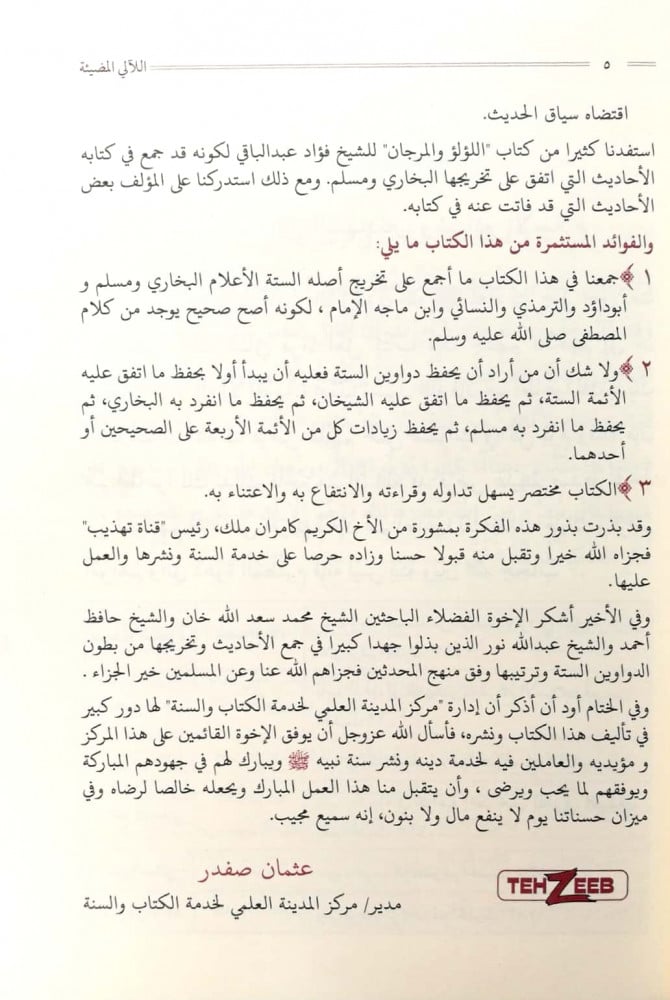 ٥ اللآلي المضيئة
اقتضاه سياق الحديث.
استفدنا كثيرا من كتاب "اللؤلؤ والمرجان" للشيخ فؤاد عبدالباقي لكونه قد جمع في كتابه
الأحاديث التي اتفق على تخريجها البخاري ومسلم. ومع ذلك استدركنا على المؤلف بعض
الأحاديث التي قد فاتت عنه في كتابه.
والفوائد المستثمرة من هذا الكتاب ما يلي:
١ جمعنا في هذا الكتاب ما أجمع على تخريج أصله الستة الأعلام البخاري ومسلم و
أبوداؤد والترمذي والنسائي وابن ماجه الإمام ، لكونه أصح صحيح يوجد من كلام
المصطفى صلى الله عليه وسلم.
٢ ولا شك أن من أراد أن يحفظ دواوين الستة فعليه أن يبدأ أولا بحفظ ما اتفق عليه
الأئمة الستة، ثم يحفظ ما اتفق عليه الشيخان، ثم يحفظ ما انفرد به البخاري، ثم
يحفظ ما انفرد به مسلم، ثم يحفظ زيادات كل من الأئمة الأربعة على الصحيحين أو
أحدهما.
٣ الكتاب مختصر يسهل تداوله وقراءته والانتفاع به والاعتناء به.
وقد بذرت بذور هذه الفكرة بمشورة من الأخ الكريم كامران ملك، رئيس "قناة تهذيب"
فجزاه الله خيرا وتقبل منه قبولا حسنا وزاده حرصا على خدمة السنة ونشرها والعمل
عليها.
وفي الأخير أشكر الإخوة الفضلاء الباحثين الشيخ محمد سعد الله خان والشيخ حافظ
أحمد والشيخ عبدالله نور الذين بذلوا جهدا كبيرا في جمع الأحاديث وتخريجها من بطون
الدواوين الستة وترتيبها وفق منهج المحدثين فجزاهم الله عنا وعن المسلمين خير الجزاء .
وفي الختام أود أن أذكر أن إدارة "مركز المدينة العلمي لخدمة الكتاب والسنة" لها دور كبير
في تأليف هذا الكتاب ونشره، فأسأل الله عزوجل أن يوفق الإخوة القائمين على هذا المركز
و مؤيديه والعاملين فيه لخدمة دينه ونشر سنة نبيه ﷺ ويبارك لهم في جهودهم المباركة
ويوفقهم لما يحب ويرضى ، وأن يتقبل منا هذا العمل المبارك ويجعله خالصا لرضاه وفي
ميزان حسناتنا يوم لا ينفع مال ولا بنون، إنه سميع مجيب.
عثمان صفدر
TEHZEEB
مدير/ مركز المدينة العلمي لخدمة الكتاب والسنة